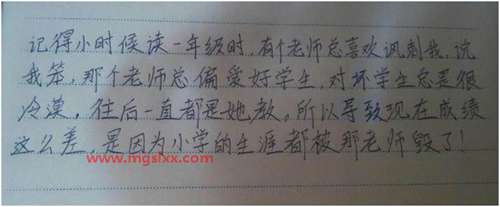 记得小时候读一年级时,有个老师总喜欢讽刺我,说
我笨,那个老师总偏爱好学生,对坏学生总是很
冷漠,往后一直都是她教。所以导致现在成绩
这么差,是因为小学的生涯都被那老师毁了!
www.mgslxx.com